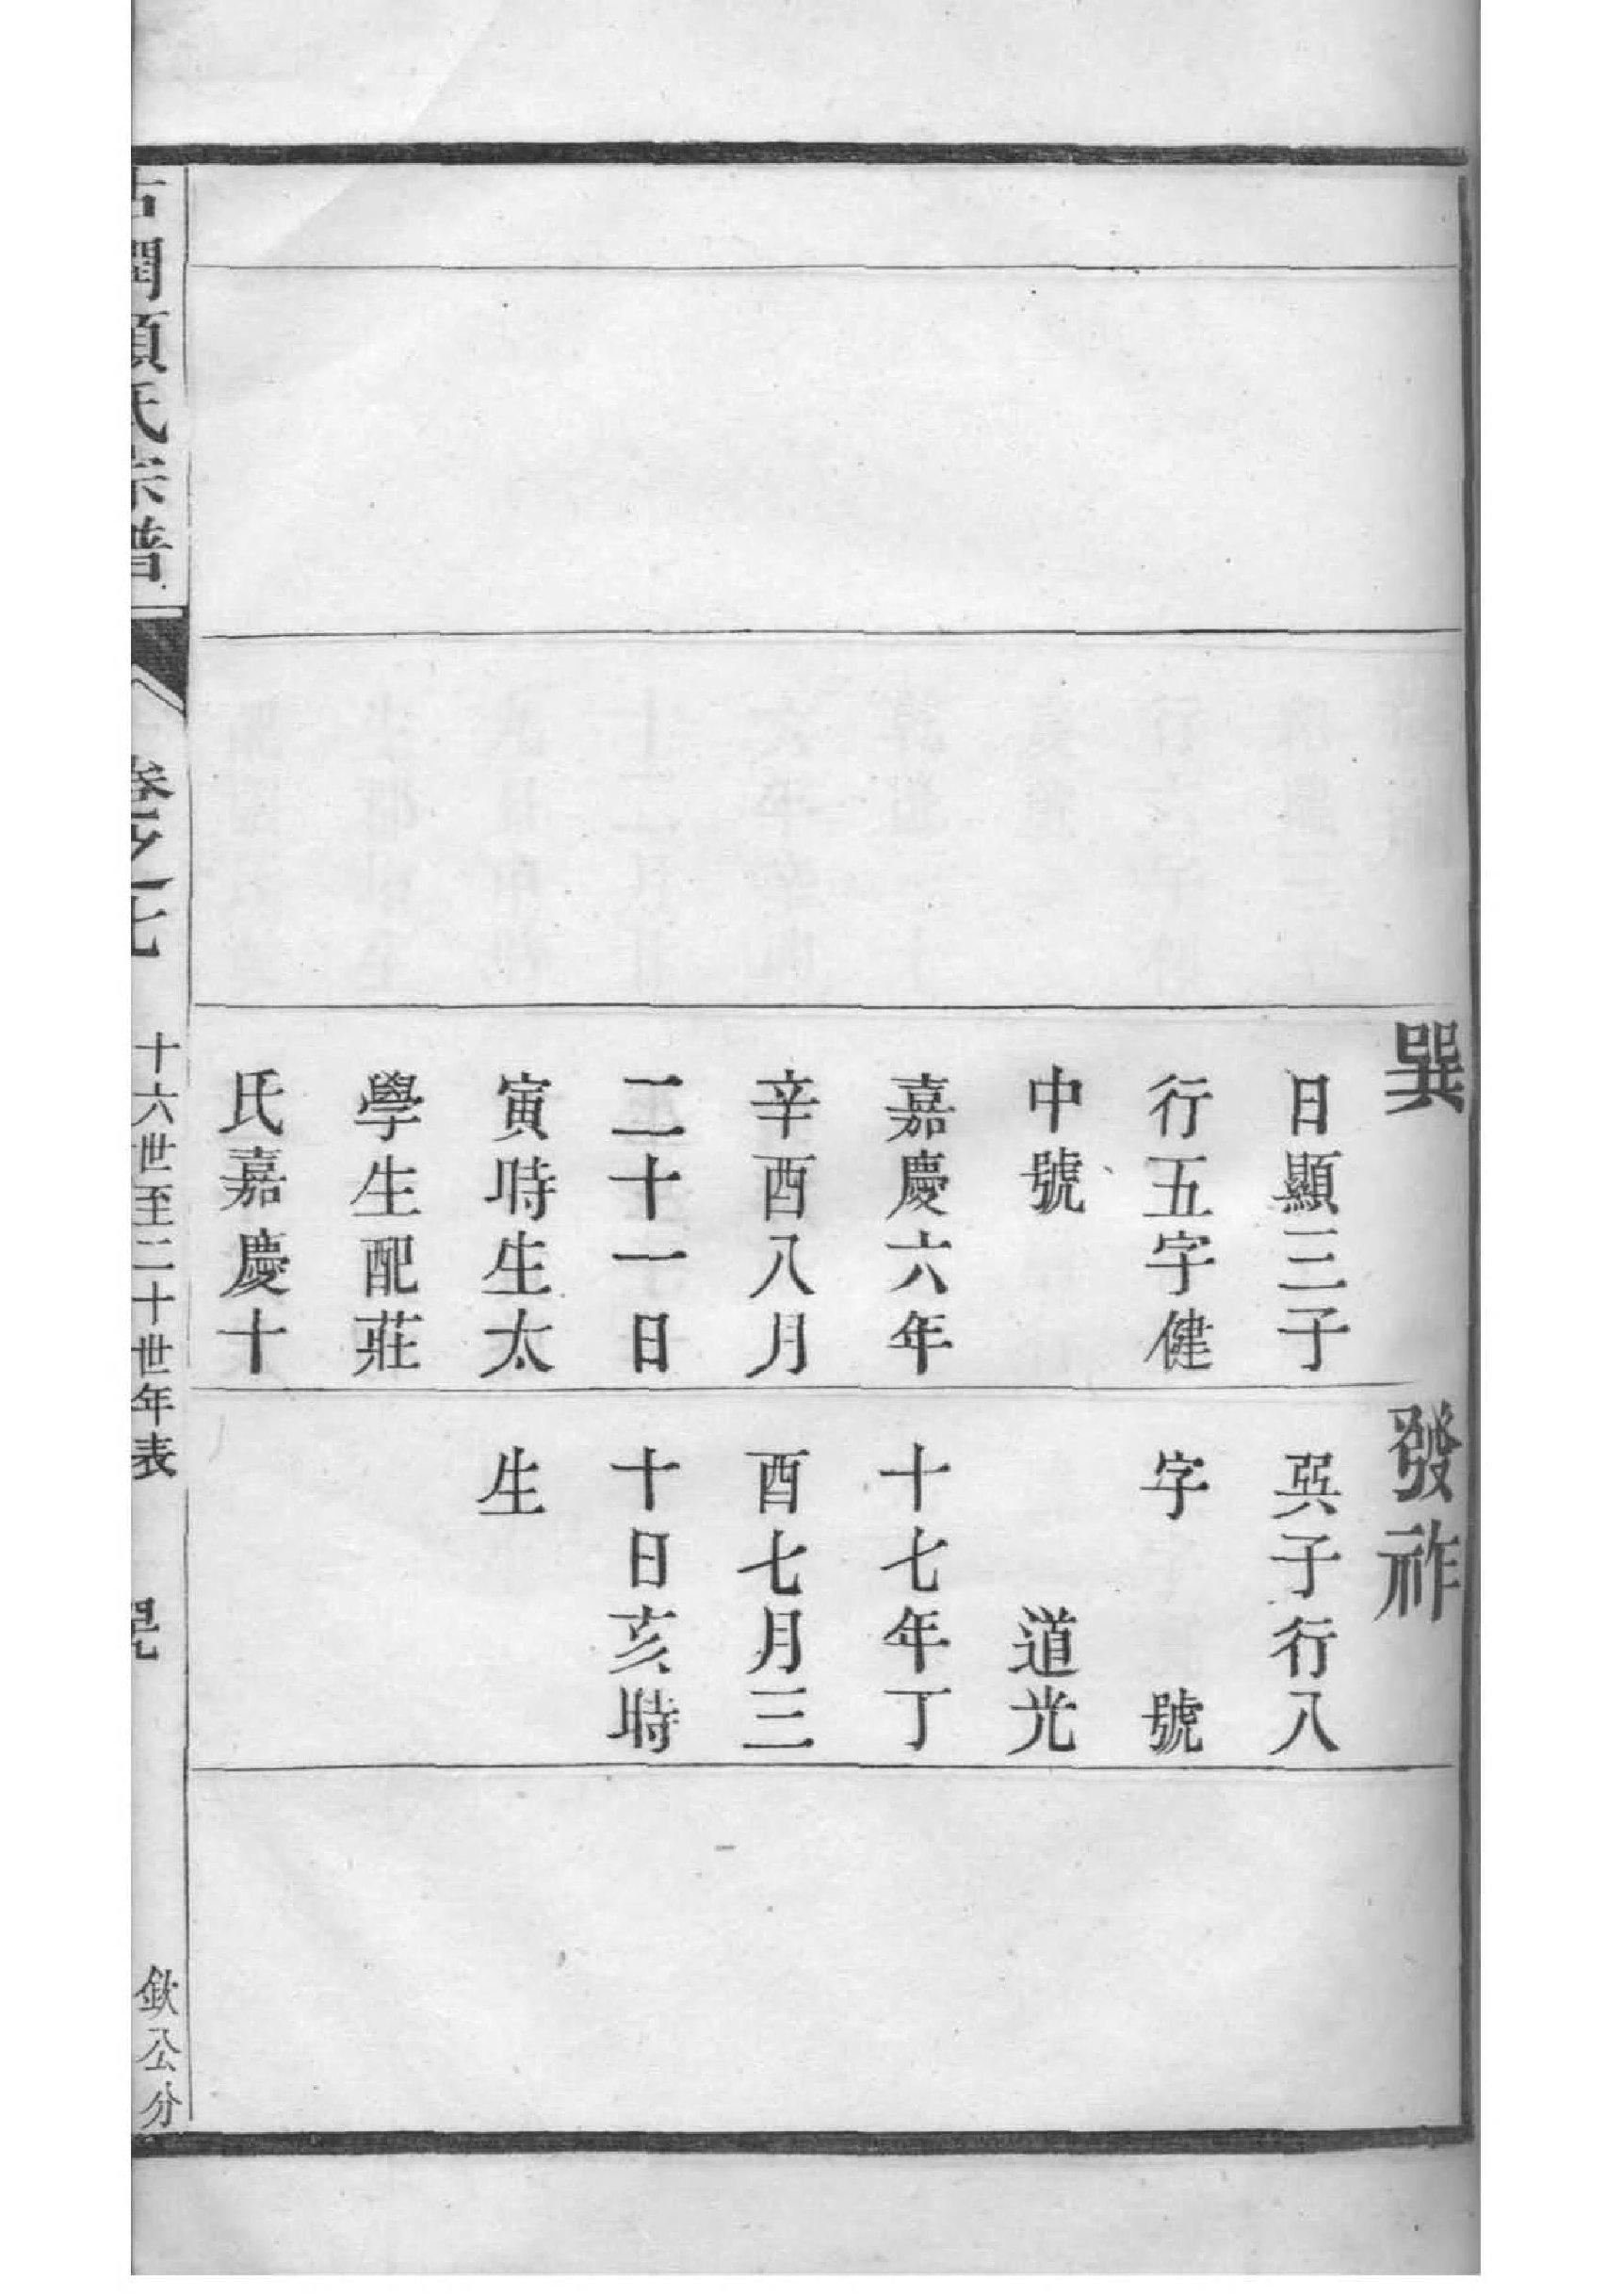 巽
日顯三子
行五字健
中號
嘉慶六年
辛酉八月
二十一日
寅時生太
學生配莊
氏嘉慶十
發祚
巽子行八
字　　號
道光
十七年丁
酉七月三
十日亥時
生
氏宗譜
卷之七
十六世至二十世年表
欽公分